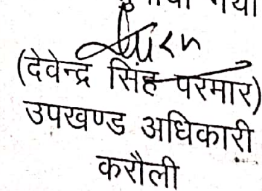 गया
(देवेन्द्र सिंह परमार)
उपखण्ड अधिकारी
करौली